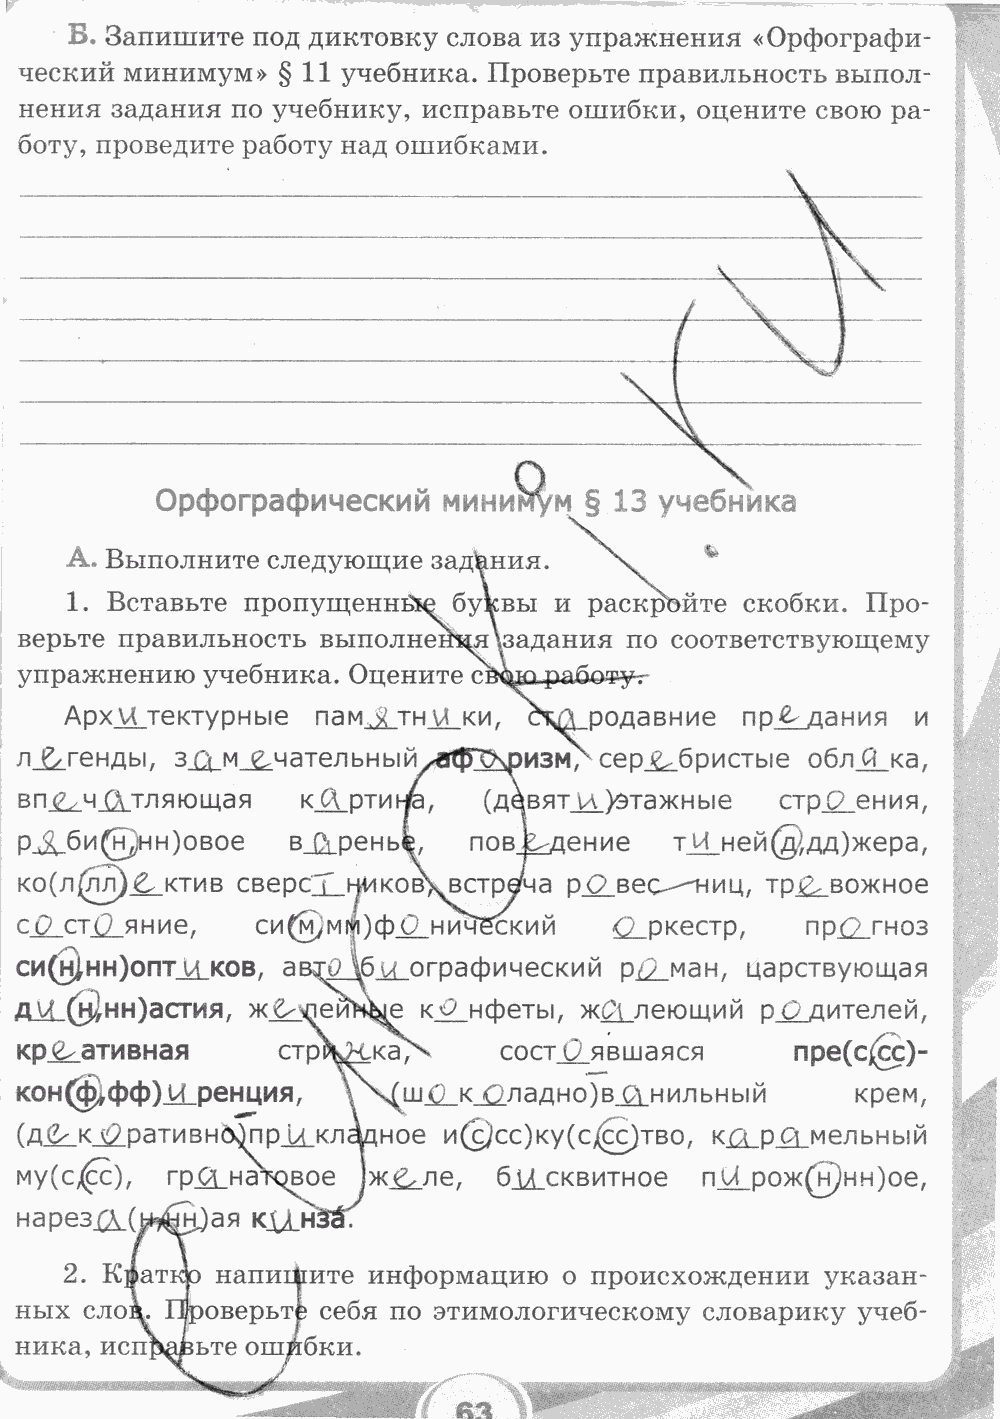 Б. Запишите под диктовку слова из упражнения «Орфографи-
ческий минимум» § 11 учебника. Проверьте правильность выпол-
нения задания по учебнику, исправьте ошибки, оцените свою ра-
боту, проведите работу над ошибками.
Орфографический минимум § 13 учебника
А. Выполните следующие задания.
1. Вставьте пропущенные буквы и раскройте скобки. Про-
верьте правильность выполнения задания по соответствующему
упражнению учебника. Оцените свою работу.
Архитектурные памятники, стародавние предания и
легенды, замечательный афоризм, серебристые облака,
впечатляющая картина, (девяти)этажные строения,
ряби(н,нн)овое варенье, поведение тиней(д,дд)жера,
ко(л,лл)ектив сверстников, встреча ровес—ниц, тревожное
состояние, си(м,мм)фонический оркестр, прогноз
си(н,нн)оптиков, автобиографический роман, царствующая
ди(н,нн)астия, желейные конфеты, жалеющий родителей,
креативная стрижка, состоявшаяся пре(с,сс)-
кон(ф,фф)иренция, (шоколадно)ванильный крем,
(декоративно)прикладное и(с,сс)ку(с,сс)тво, карамельный
му(с,сс), гранатовое желе, бисквитное пирож(н,нн)ое,
нареза(н,нн)ая кинза́.
2. Кратко напишите информацию о происхождении указан-
ных слов. Проверьте себя по этимологическому словарику учеб-
ника, исправьте ошибки.
63